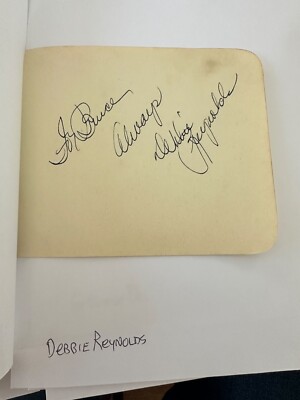 To Bruce
Always
Debbie
Reynolds
DEBBIE REYNOLDS